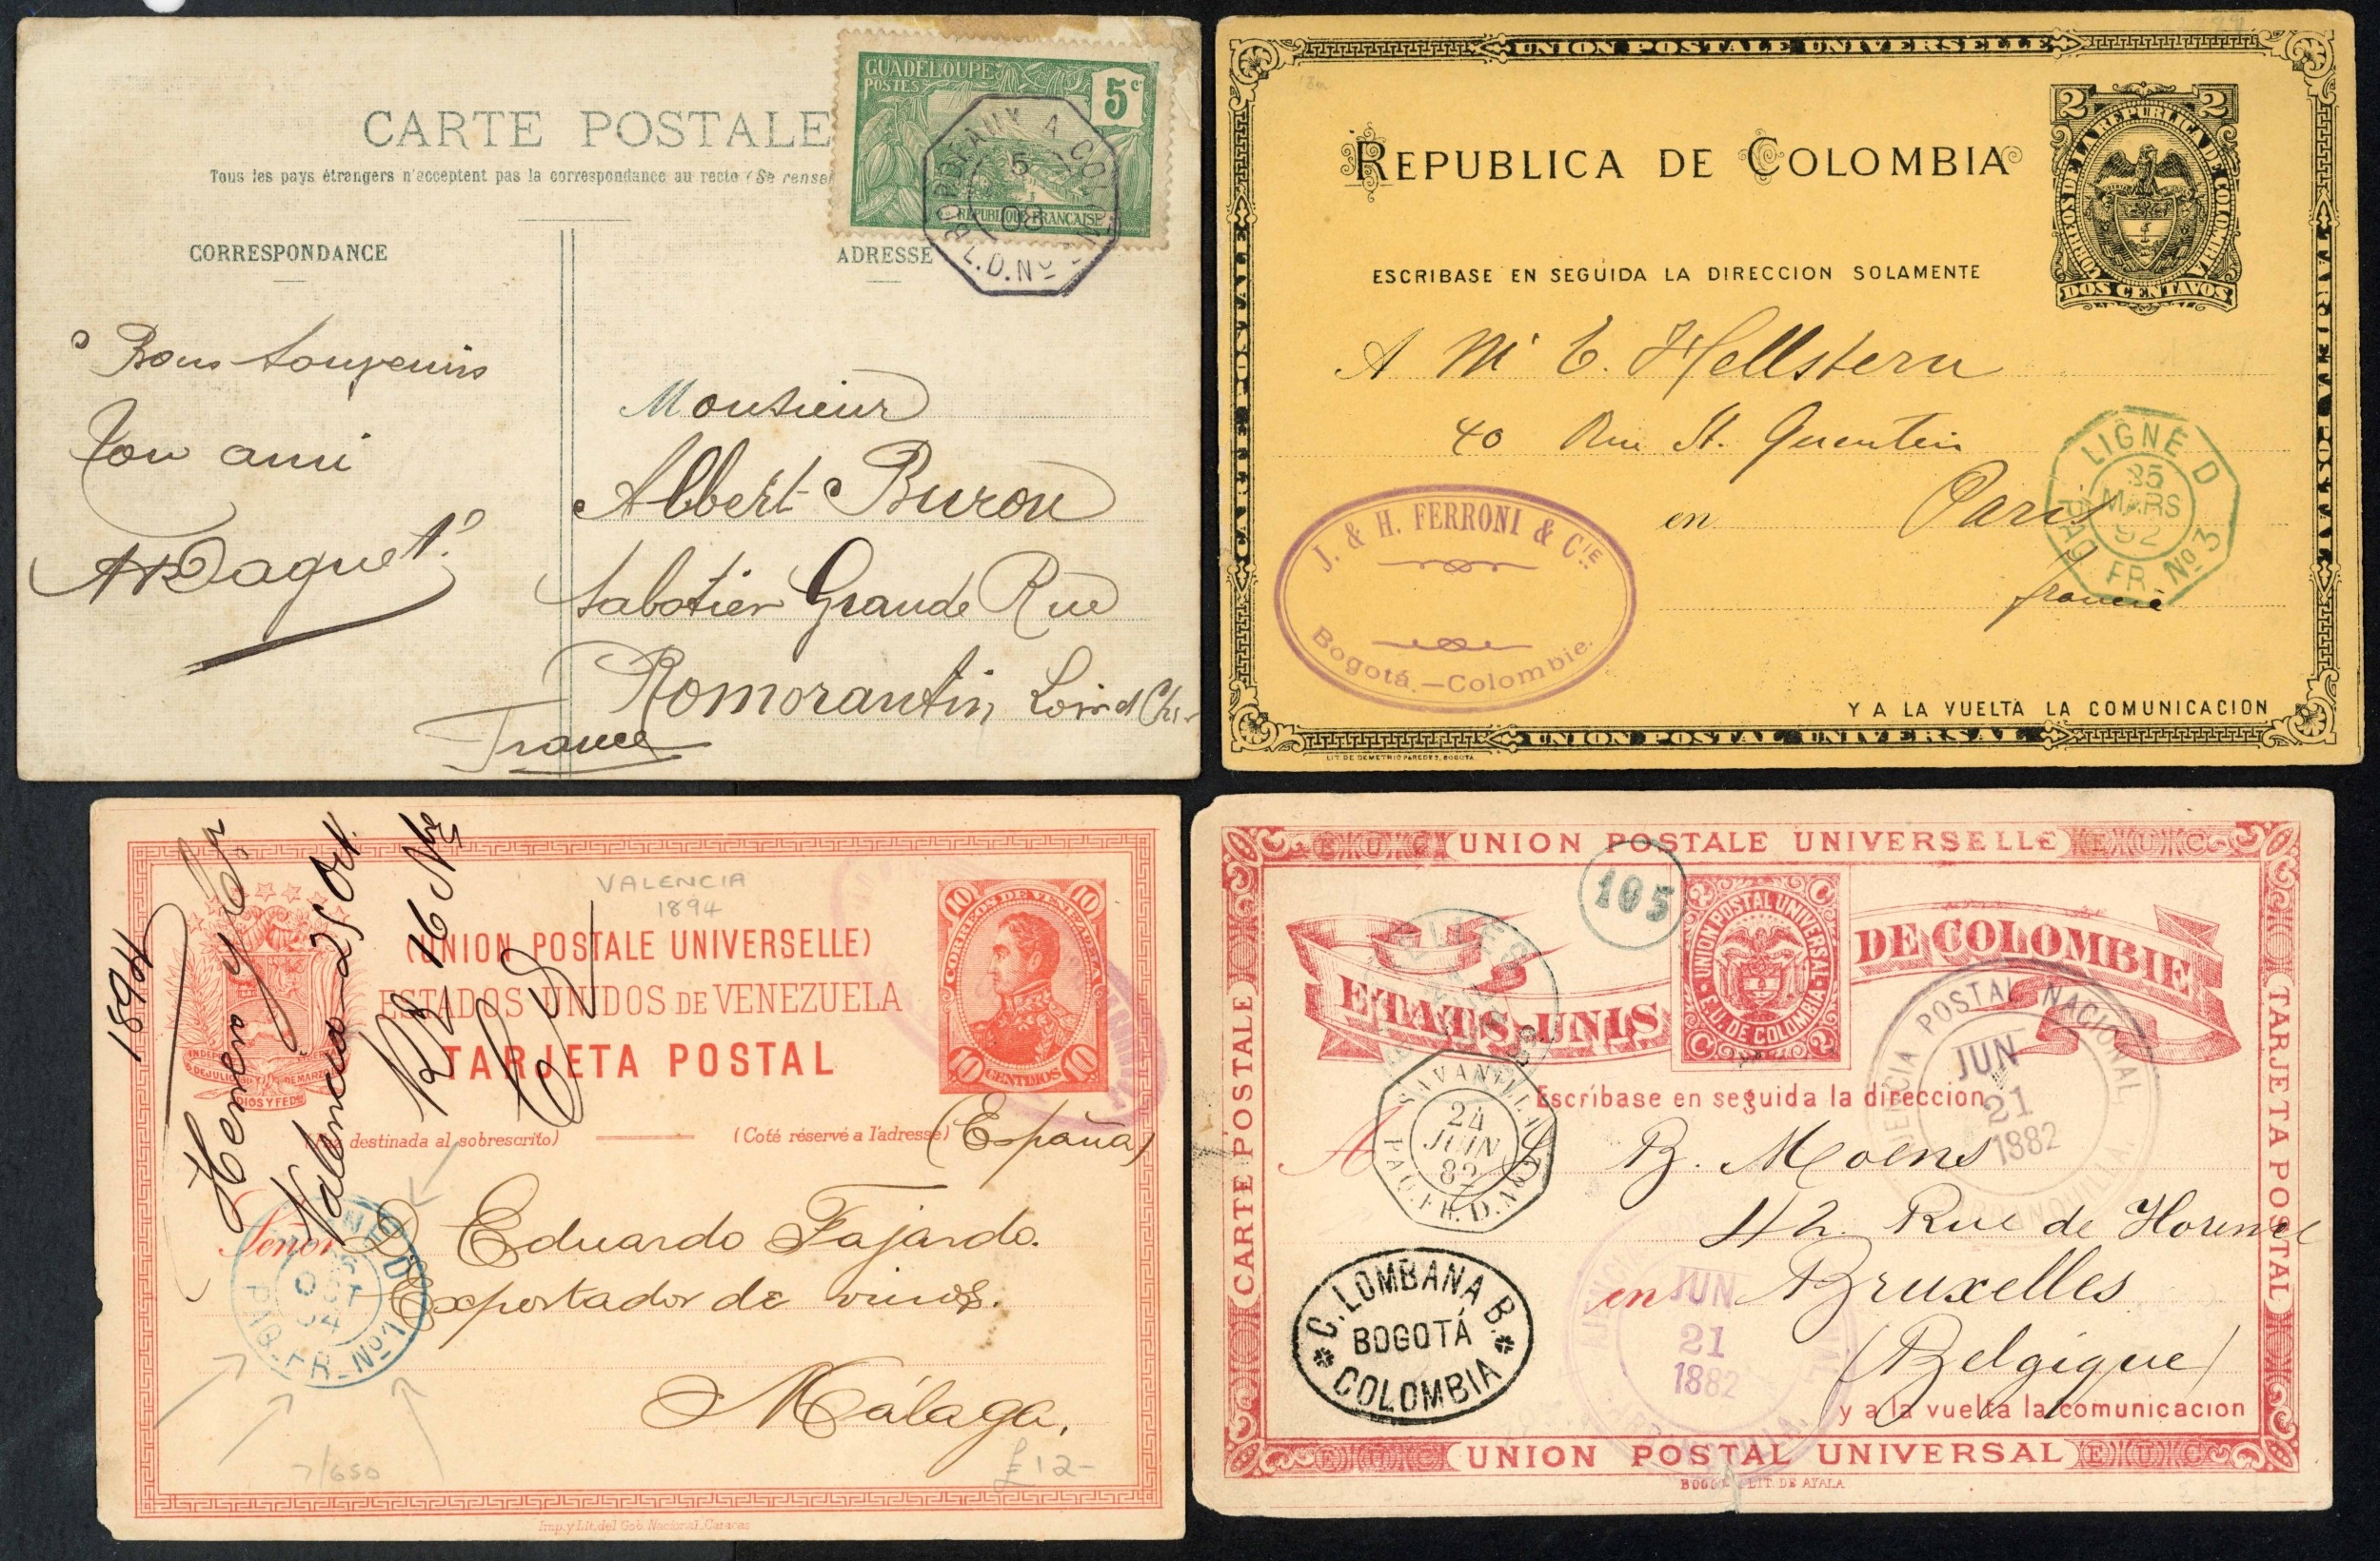 CARTE POSTALE
Tous les pays étrangers n'acceptent pas la correspondance au recto (Se rensei
CORRESPONDANCE
ADRESSE
GUADELOUPE
POSTES
5c
REPUBLIQUE FRANÇAISE
BORDEAUX A COLON
5
08
L.D. No
Bons souvenirs
Ton ami
Daguet
Monsieur
Albert Buron
Sabotier Grande Rue
Romorantin, Loir et Cher
France
UNION POSTALE UNIVERSELLE
CARTE POSTALE
TARJETA POSTAL
REPUBLICA DE COLOMBIA
2 2
CORREOS DE LA REPUBLICA DE COLOMBIA
DOS CENTAVOS
ESCRIBASE EN SEGUIDA LA DIRECCION SOLAMENTE
A Mr E. Hellstern
40 Rue St. Quentin
en Paris
France
LIGNE D
25
MARS
92
PAQ. FR. No 3
J. & H. FERRONI & CIE
Bogotá.—Colombie.
Y A LA VUELTA LA COMUNICACION
UNION POSTAL UNIVERSAL
LIT. DE DEMETRIO PAREDES, BOGOTA
1894
Valencia 25 Oct.
16
VALENCIA
1894
(UNION POSTALE UNIVERSELLE)
ESTADOS UNIDOS DE VENEZUELA
TARJETA POSTAL
10 10
CORREOS DE VENEZUELA
10 CENTIMOS 10
DIOS Y FEDON
destinada al sobrescrito)
(Coté réservé a l'adresse)
(España)
Señor D. Eduardo Fajardo.
Exportador de vinos.
Málaga,
LIGNE D
OCT
94
PAQ. FR. No 1
7/650
£12-
Imp. y Lit. del Gob. Nacional_Caracas
E.U.C. UNION POSTALE UNIVERSELLE E.U.C.
CARTE POSTALE
TARJETA POSTAL
105
ETATS UNIS
DE COLOMBIE
C 2
UNION POSTAL UNIVERSAL
E.U. DE COLOMBIA
AJENCIA POSTAL NACIONAL
JUN
21
1882
BARRANQUILLA.
Escríbase en seguida la direccion
SAVANILLA
24
JUIN
82
PAQ. FR. D. No 2
A
B. Moens
42 Rue de
en Bruxelles
(Belgique)
C. LOMBANA B.
BOGOTÁ
COLOMBIA
AJENCIA
JUN
21
1882
y a la vuelta la comunicacion
E.U.C. UNION POSTAL UNIVERSAL E.U.C.
LIT. DE AYALA